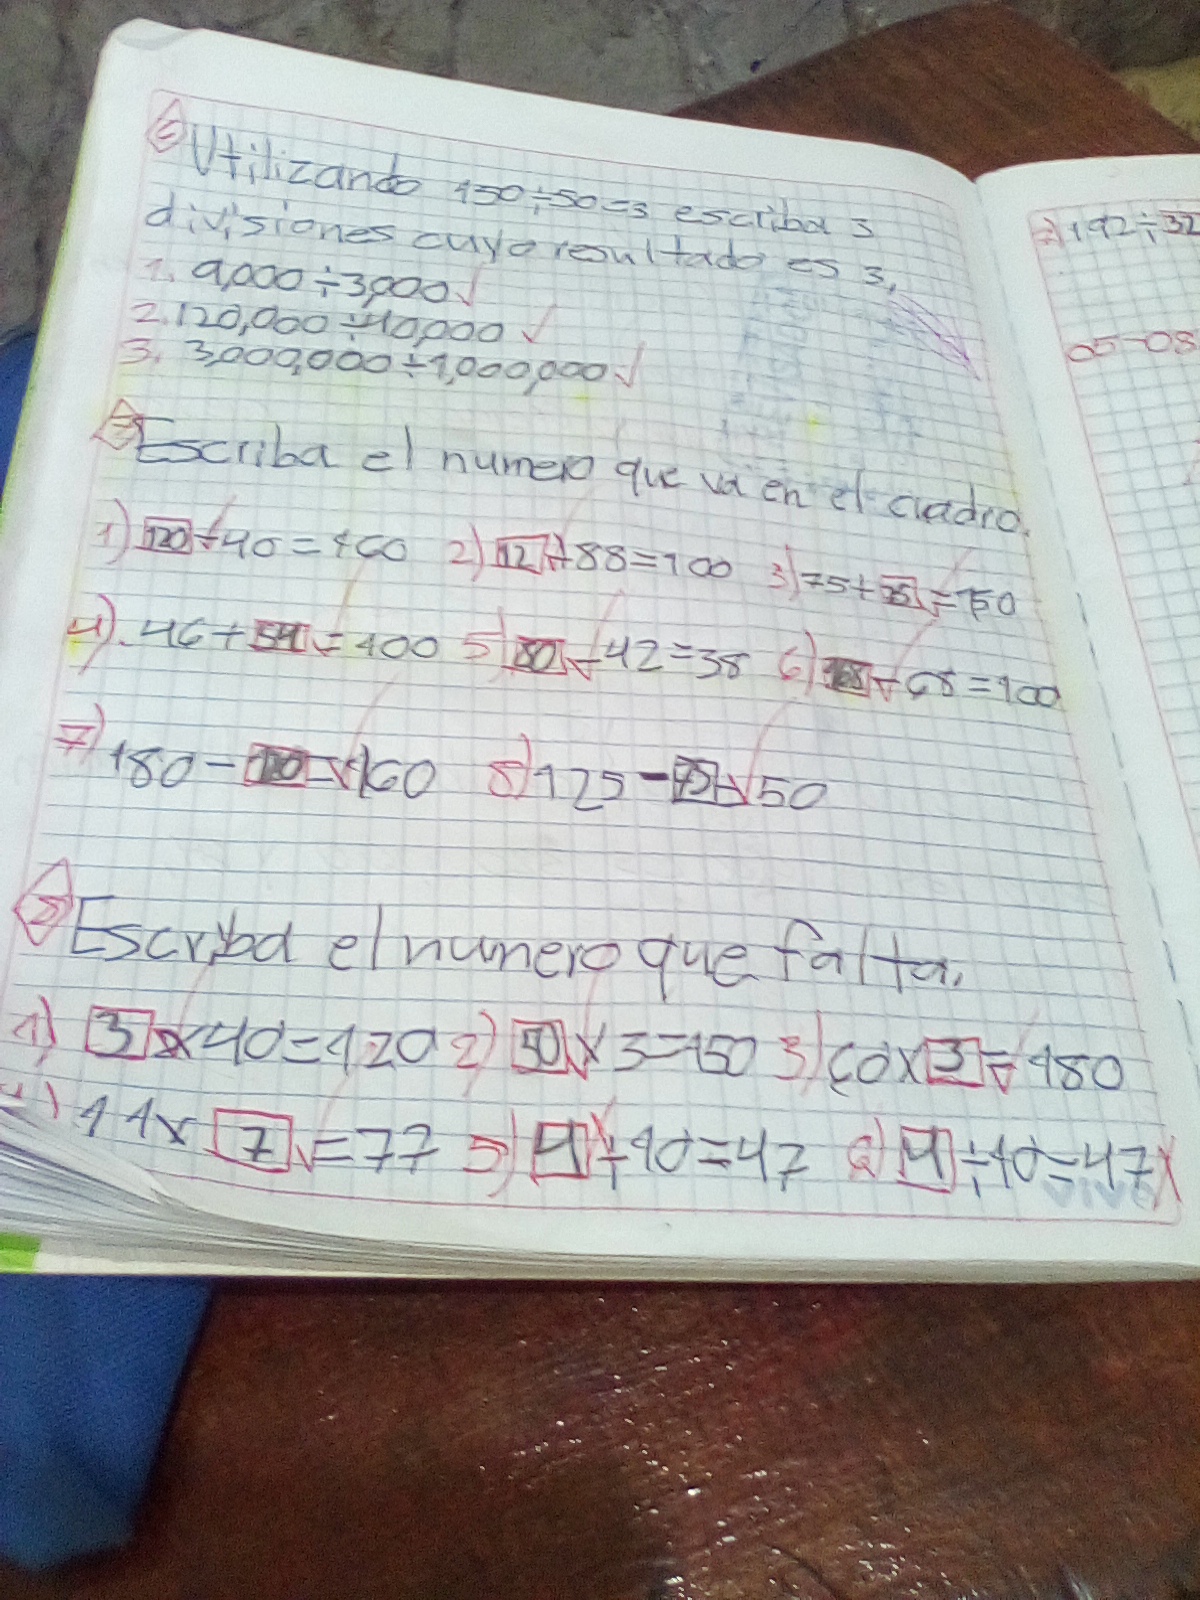 6 Utilizando 150÷50=3 escriba 3
divisiones cuyo resultado es 3,
1. 9,000÷3,000
2. 120,000÷40,000
3. 3,000,000÷1,000,000
7 Escriba el numero que va en el cuadro.
1) 120+40=160 2) 12+88=100 3) 75+75=150
4) 46+54=100 5) 80-42=38 6) 168-68=100
7) 180-=160 8) 125-75=50
8 Escriba el numero que falta.
1) 3×40=120 2) 50×3=150 3) 60×3=180
4) 11×7=77 5) 4÷10=47 6) 4÷10=47
7) 192÷32
05-08